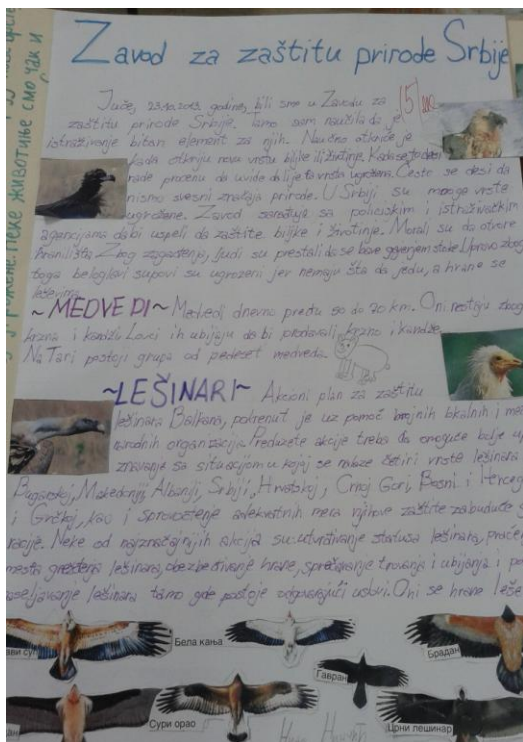 Zavod za zaštitu prirode Srbije
Juče, godine, bili smo u Zavodu za
zaštitu prirode Srbije. Tamo sam naučila da je
istraživanje bitan element za njih. Naučno otkriće je
kada otkriju novu vrstu biljke ili životinje. Kada se to desi
rade procenu da uvide da li je ta vrsta ugrožena. Često se desi da
nismo svesni značaja prirode. U Srbiji su mnoge vrste
ugrožene. Zavod sarađuje sa policijskim i istraživačkim
agencijama da bi uspeli da zaštite biljke i životinje. Morali su da otvore
hranilišta. Zbog zagađenja, ljudi su prestali da se bave gajenjem stoke. Upravo zbog
toga beloglavi supovi su ugroženi jer nemaju šta da jedu, a hrane se
lešinama.
~MEDVEDI~ Medvedi dnevno pređu 20 km. Oni nestaju zbog
krzna i kandži. Lovci ih ubijaju da bi prodavali krzno i kandže.
Na Tari postoji grupa od pedeset medveda.
~LEŠINARI~ Akcioni plan za zaštitu
lešinara Balkana, pokrenut je uz pomoć brojnih lokalnih i me
narodnih organizacija. Preduzete akcije treba da omoguće bolje u
znavanje sa situacijom u kojoj se nalaze četiri vrste lešinara
Bugarskoj, Makedoniji, Albaniji, Srbiji, Hrvatskoj, Crnoj Gori, Bosni i Herceg
i Grčkoj, kao i sprovođenje adekvatnih mera njihove zaštite za buduće
racije. Neke od najznačajnijih akcija su: utvrđivanje statusa lešinara, praćen
mesta gnežđenja lešinara, obezbeđivanje hrane, sprečavanje trovanja i ubijanja i po
naseljavanje lešinara tamo gde postoje odgovarajući uslovi. Oni se hrane leše
Бела кања
Брадан
Гавран
Сури орао
Црни лешинар
Неке животиње смо чак и